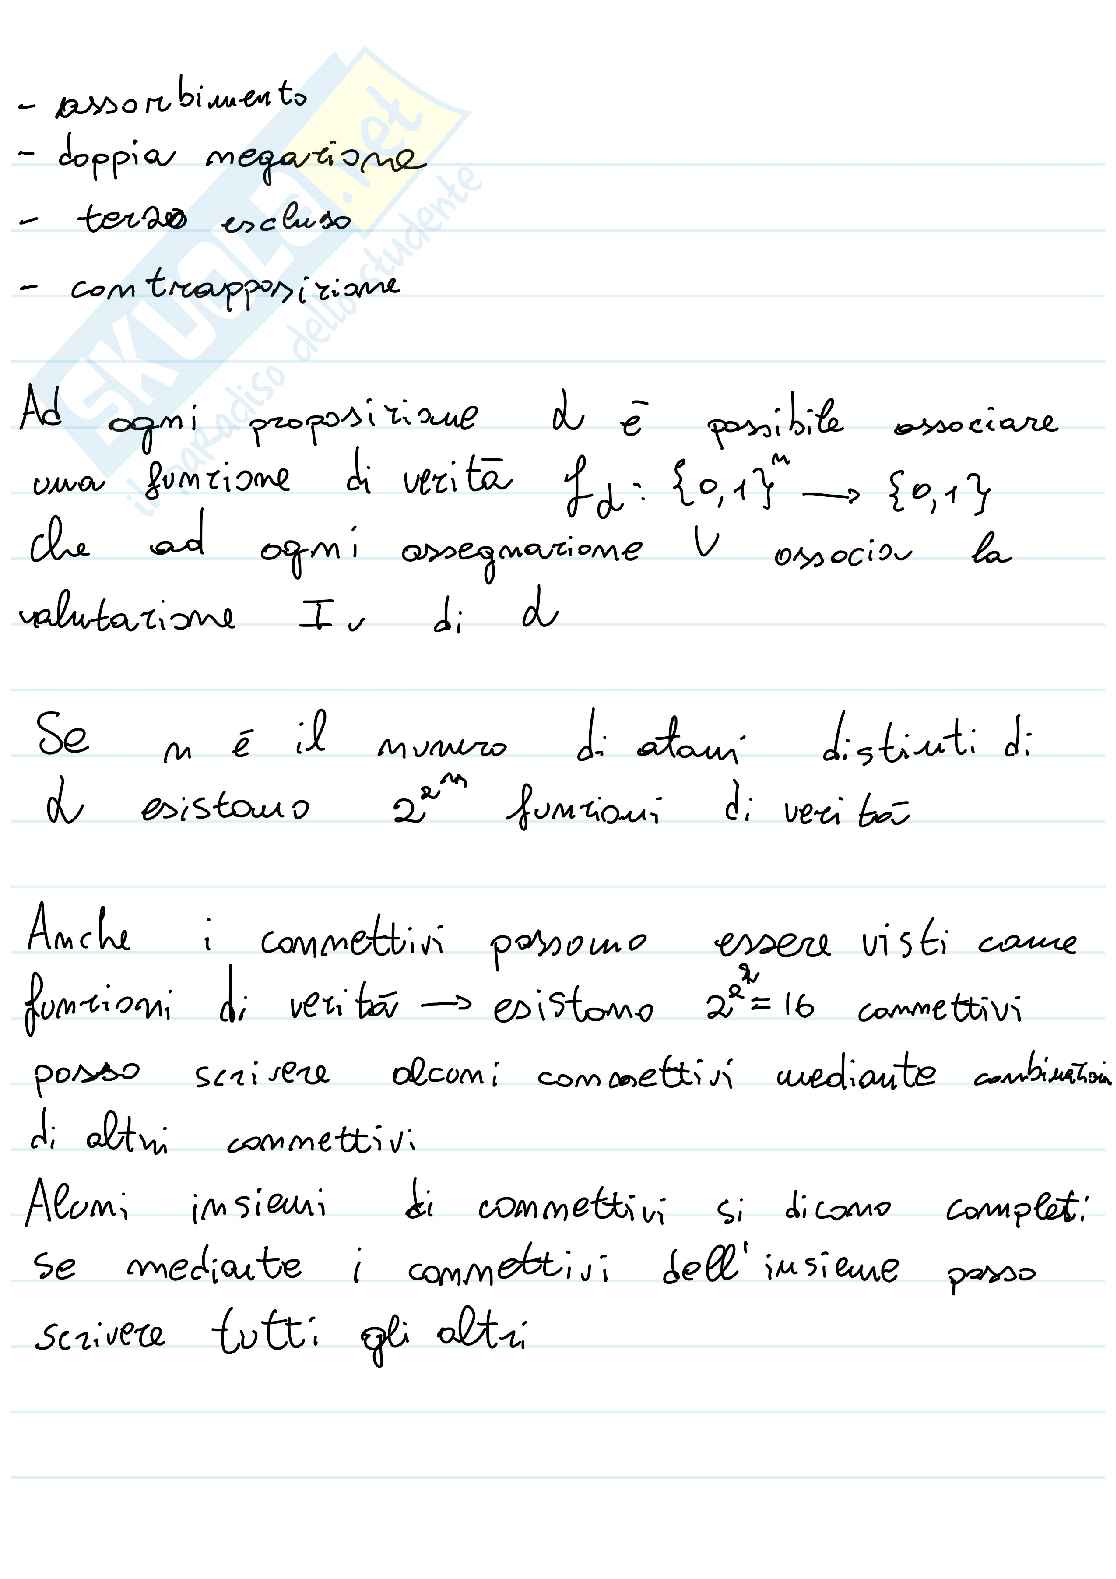 - assorbimento
- doppia negazione
- terzo escluso
- contrapposizione
Ad ogni proposizione α è possibile associare
una funzione di verità f_α : {0,1}^n → {0,1}
che ad ogni assegnazione V associa la
valutazione I_v di α
Se n è il numero di atomi distinti di
α esistono 2^2^n funzioni di verità
Anche i connettivi possono essere visti come
funzioni di verità → esistono 2^2^2 = 16 connettivi
posso scrivere alcuni connettivi mediante combinazioni
di altri connettivi
Alcuni insiemi di connettivi si dicono completi
se mediante i connettivi dell'insieme posso
scrivere tutti gli altri
SKUOLA.net
il paradiso dello studente